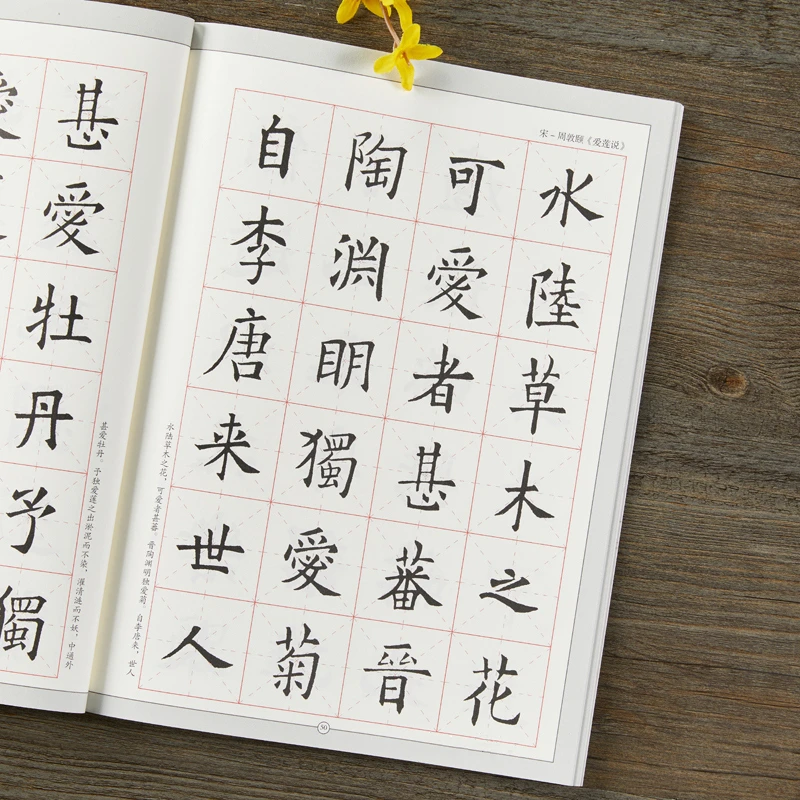 宋-周敦颐《爱莲说》
水陸草木之花
可愛者甚蕃晉
陶渊眀獨愛菊
自李唐来世人
水陆草木之花，可爱者甚蕃。晋陶渊明独爱菊。自李唐来，世人
50
甚爱牡丹。予独爱莲之出淤泥而不染，濯清涟而不妖，中通外
甚愛牡丹予獨